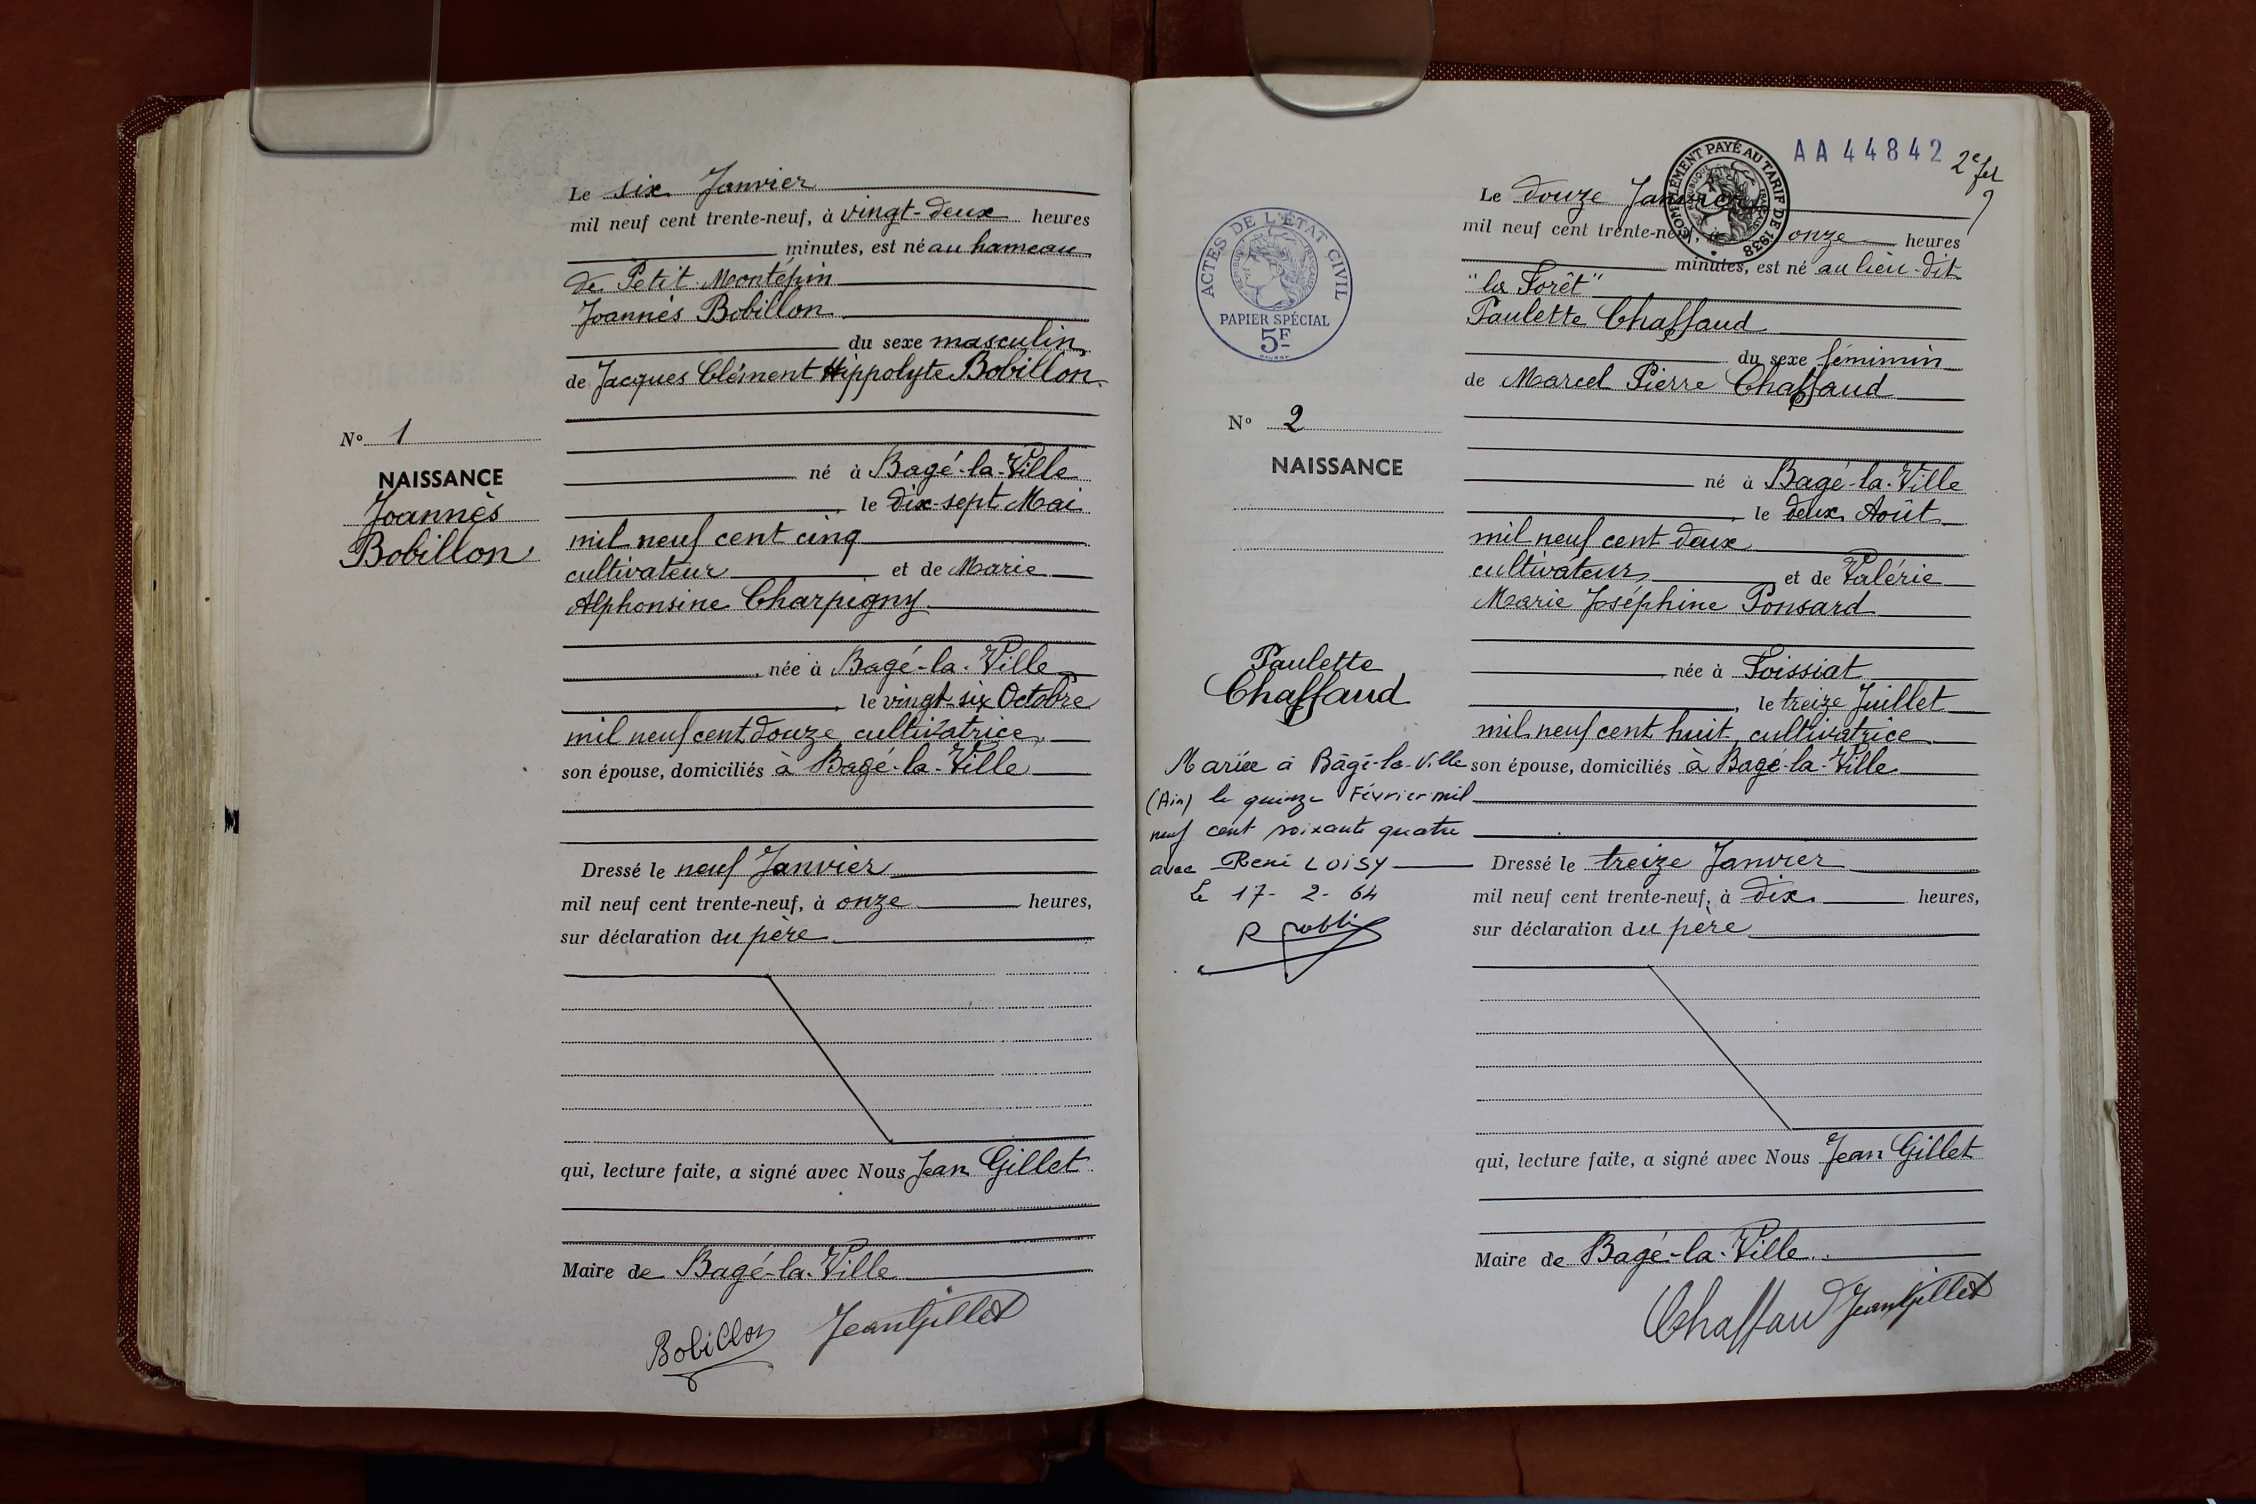 Le six Janvier
mil neuf cent trente-neuf, à vingt-deux heures
minutes, est né au hameau
de Petit Montépin
Joannès Bobillon
du sexe masculin
de Jacques Clément Hippolyte Bobillon
né à Bagé-la-Ville
le dix-sept Mai
mil neuf cent cinq
cultivateur et de Marie
Alphonsine Charpigny
née à Bagé-la-Ville
le vingt-six Octobre
mil neuf cent douze, cultivatrice,
son épouse, domiciliés à Bagé-la-Ville
Dressé le neuf Janvier
mil neuf cent trente-neuf, à onze heures,
sur déclaration du père
qui, lecture faite, a signé avec Nous Jean Gillet
Maire de Bagé-la-Ville
Bobillon Jean Gillet
No 1
NAISSANCE
Joannès
Bobillon
AA 44842
2e
COMPLÉMENT PAYÉ AU TARIF DE 1938
ACTES DE L'ÉTAT CIVIL
RÉPUBLIQUE FRANÇAISE
PAPIER SPÉCIAL
5F
No 2
NAISSANCE
Paulette
Chaffaud
Mariée à Bâgé-la-Ville
(Ain) le quinze Février mil
neuf cent soixante quatre
avec René LOISY
Le 17-2-64
Le douze Janvier
mil neuf cent trente-neuf, à onze heures
minutes, est né au lieu-dit
"la Forêt"
Paulette Chaffaud
du sexe féminin
de Marcel Pierre Chaffaud
né à Bagé-la-Ville
le deux Août
mil neuf cent deux
cultivateur, et de Valérie
Marie Joséphine Ponsard
née à Foissiat
le treize Juillet
mil neuf cent huit, cultivatrice
son épouse, domiciliés à Bagé-la-Ville
Dressé le treize Janvier
mil neuf cent trente-neuf, à dix heures,
sur déclaration du père
qui, lecture faite, a signé avec Nous Jean Gillet
Maire de Bagé-la-Ville
Chaffaud Jean Gillet